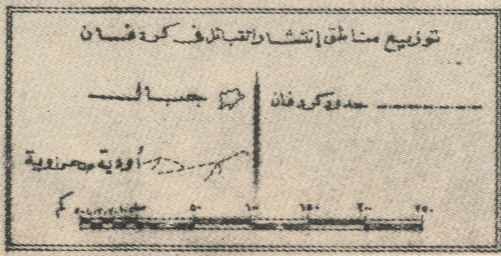 توزيع مناطق إنتشار القبائل فى كردفان
حدود كردفان
جبال
أودية صحراوية
كم ٥٠ ١٠٠ ١٥٠ ٢٠٠ ٢٥٠